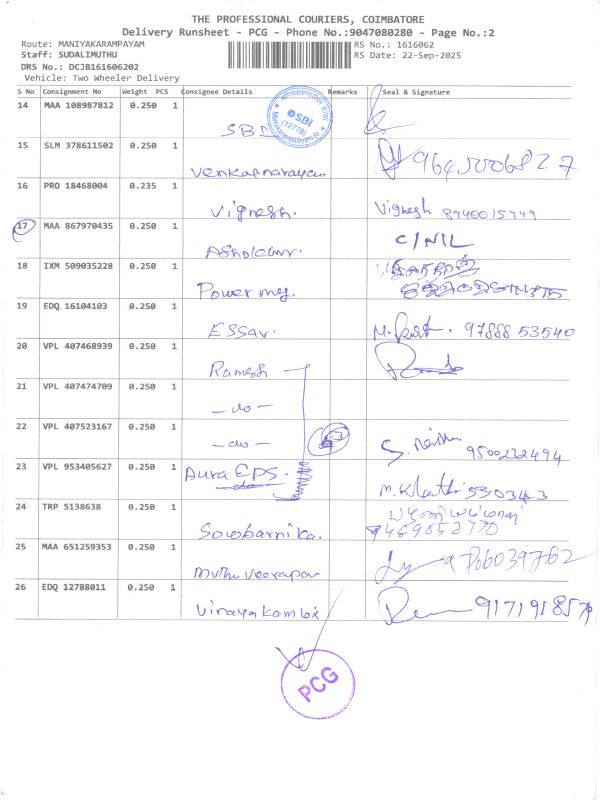 THE PROFESSIONAL COURIERS, COIMBATORE
Delivery Runsheet - PCG - Phone No.:9047080280 - Page No.:2
Route: MANIYAKARAMPAYAM RS No.: 1616062
Staff: SUDALIMUTHU RS Date: 22-Sep-2025
DRS No.: DCJB161606202
Vehicle: Two Wheeler Delivery
S No Consignment No Weight PCS Consignee Details Remarks Seal & Signature
14 MAA 108987812 0.250 1
SBI SBI (12778)
15 SLM 378611502 0.250 1
Venkatnarayan.
16 PRO 18468004 0.235 1
Vignesh. Vignesh 8940015799
17 MAA 867970435 0.250 1 C/NIL
Ashokenr.
18 IXM 509035228 0.250 1
Power meg.
19 EDQ 16104103 0.250 1
ESSAR. 97888 53540
20 VPL 407468939 0.250 1
Ramesh
21 VPL 407474709 0.250 1
- do -
22 VPL 407523167 0.250 1
- do - 9500232494
23 VPL 953405627 0.250 1
Aura EPS.
24 TRP 5138638 0.250 1
Sowbarnika.
25 MAA 651259353 0.250 1
Muthu veerapan
26 EDQ 12788011 0.250 1
Vinayakambi
PCG